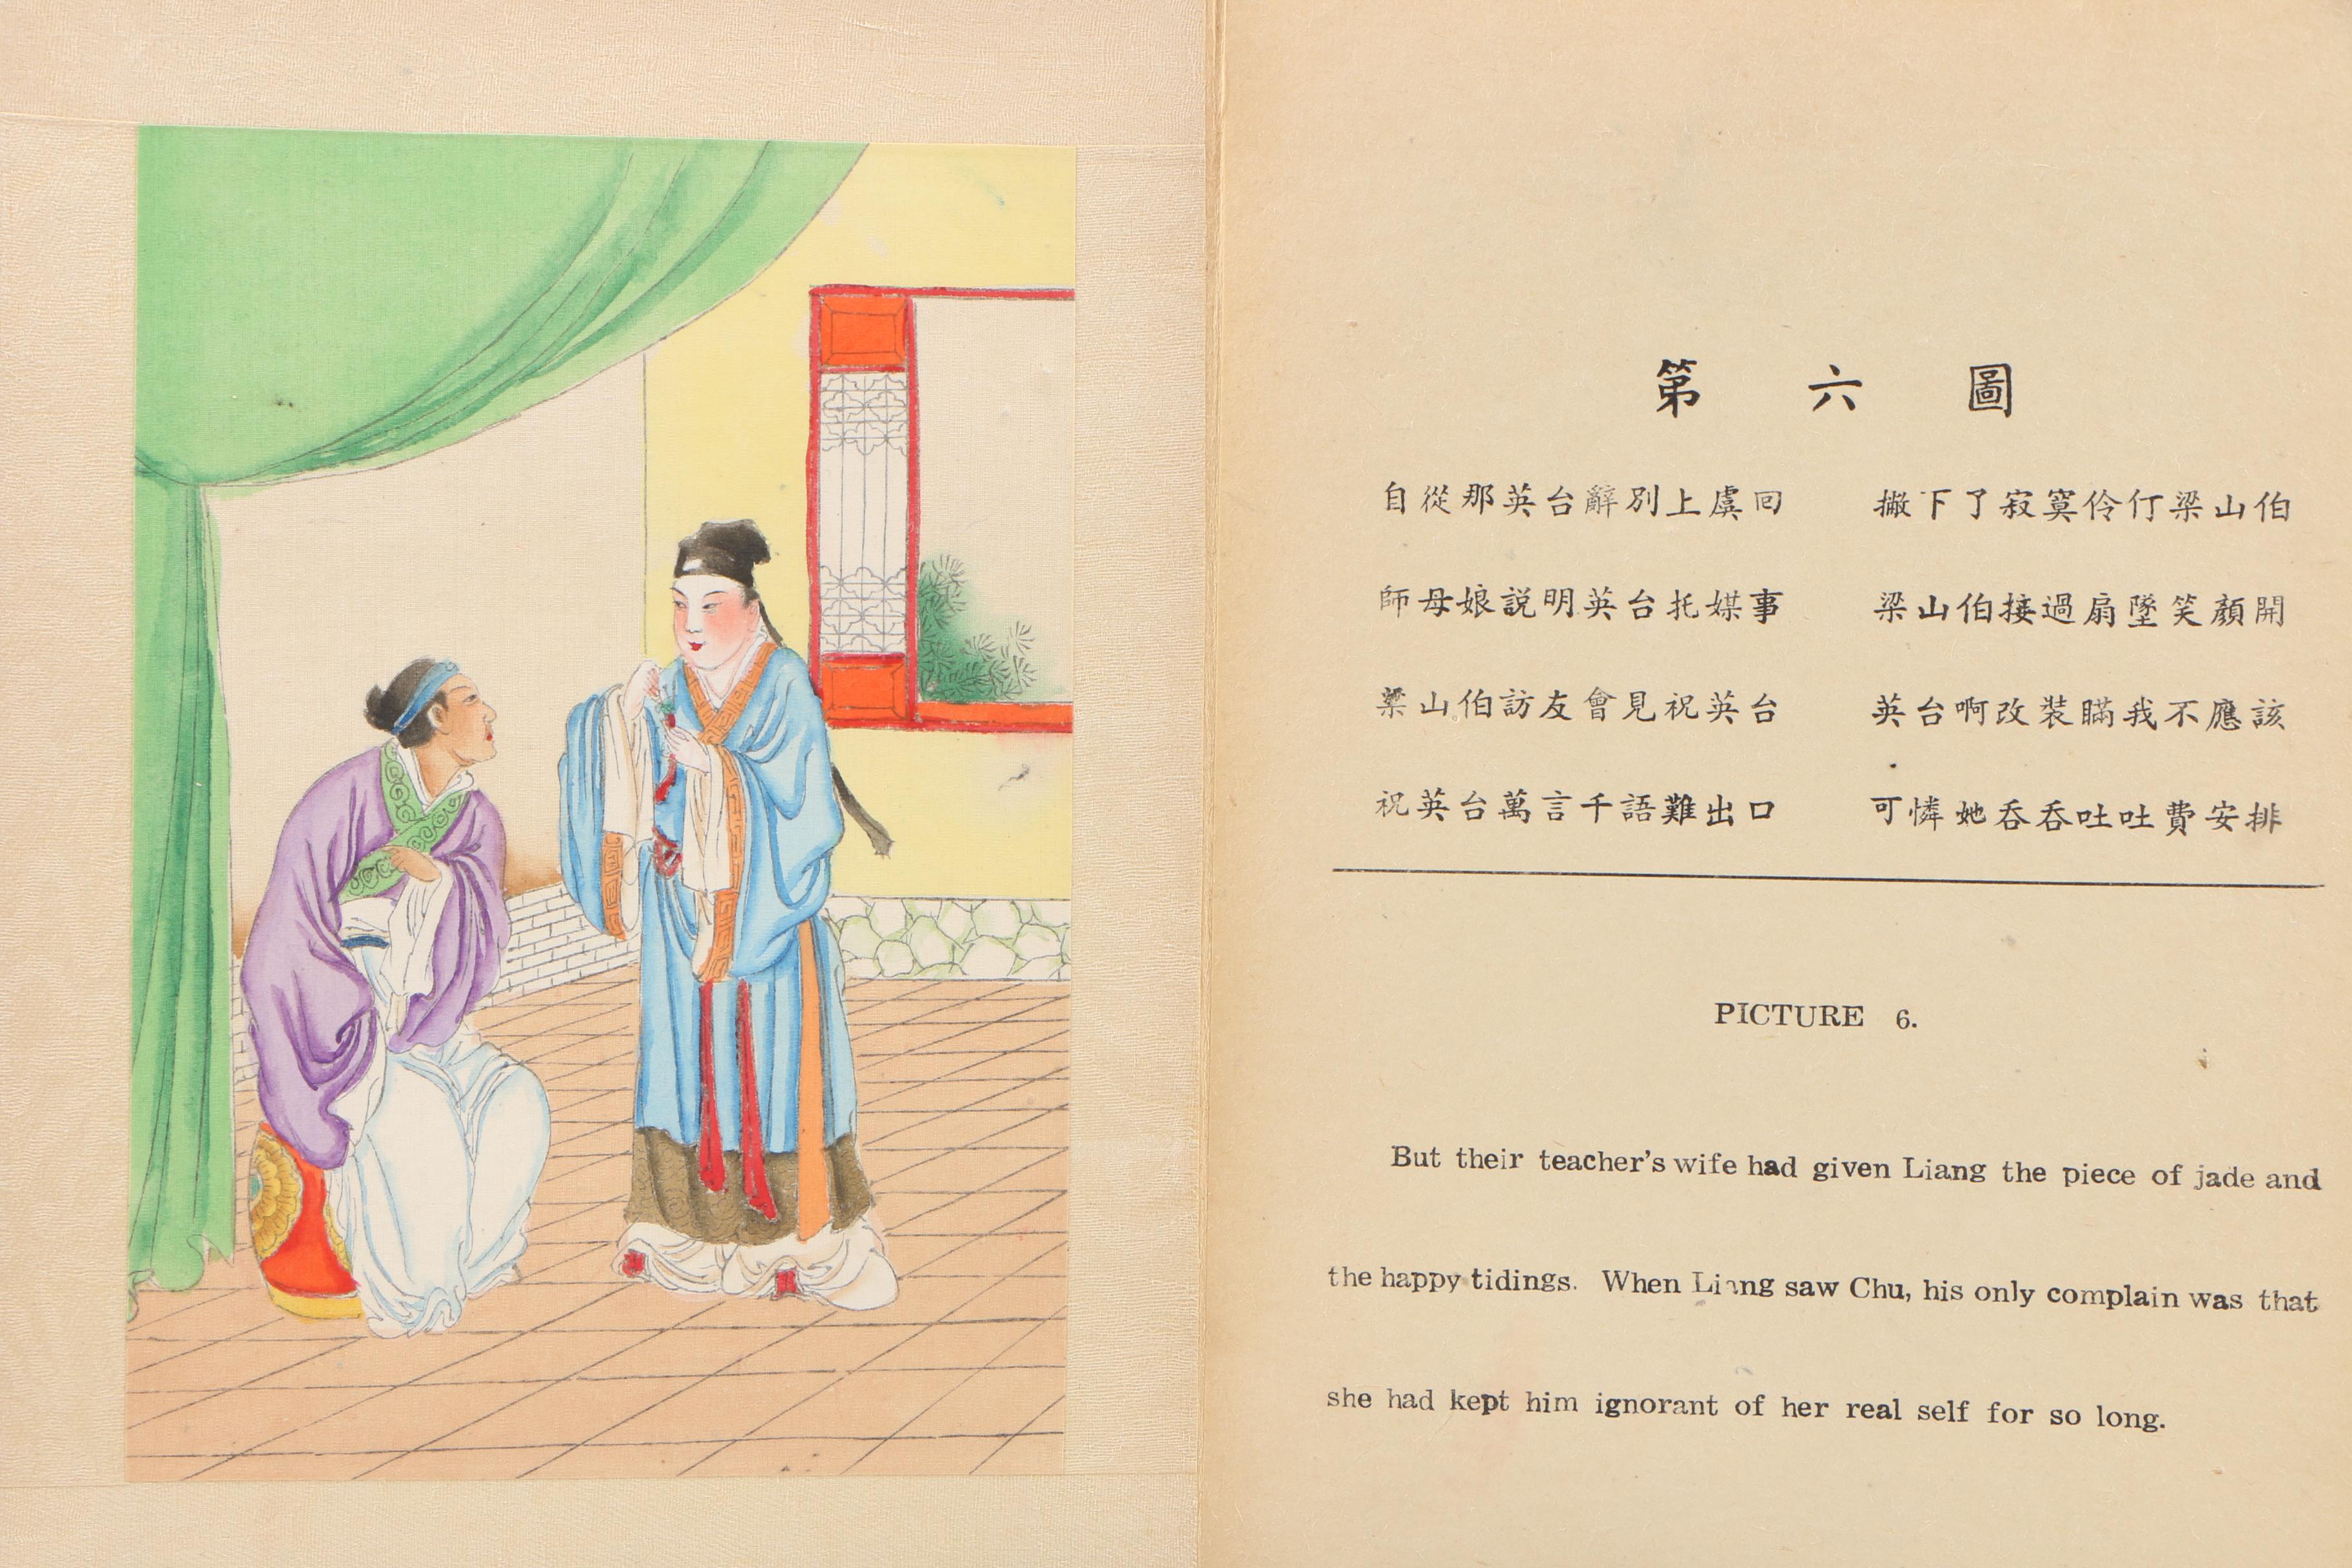 第六圖
自從那英台辭別上虞回 撇下了寂寞伶仃梁山伯
師母娘説明英台托媒事 梁山伯接過扇墜笑顏開
梁山伯訪友會見祝英台 英台啊改裝瞞我不應該
祝英台萬言千語難出口 可憐她吞吞吐吐費安排
PICTURE 6.
But their teacher's wife had given Liang the piece of jade and
the happy tidings. When Liang saw Chu, his only complain was that
she had kept him ignorant of her real self for so long.